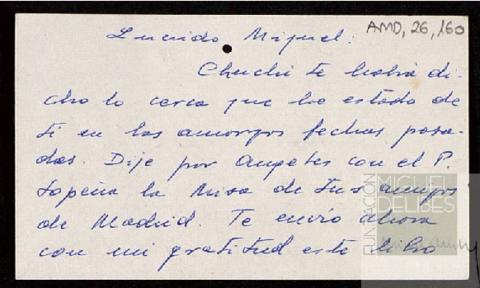 AMD, 26, 160
Querido Miguel:
Chuchi te habrá di-
cho lo cerca que he estado de
ti en las amargas fechas pasa-
das. Dije por Angeles con el P.
Sopeña la Misa de tus amigos
de Madrid. Te envío ahora
con mi gratitud este libro
FUNDACIÓN
MIGUEL
DELIBES